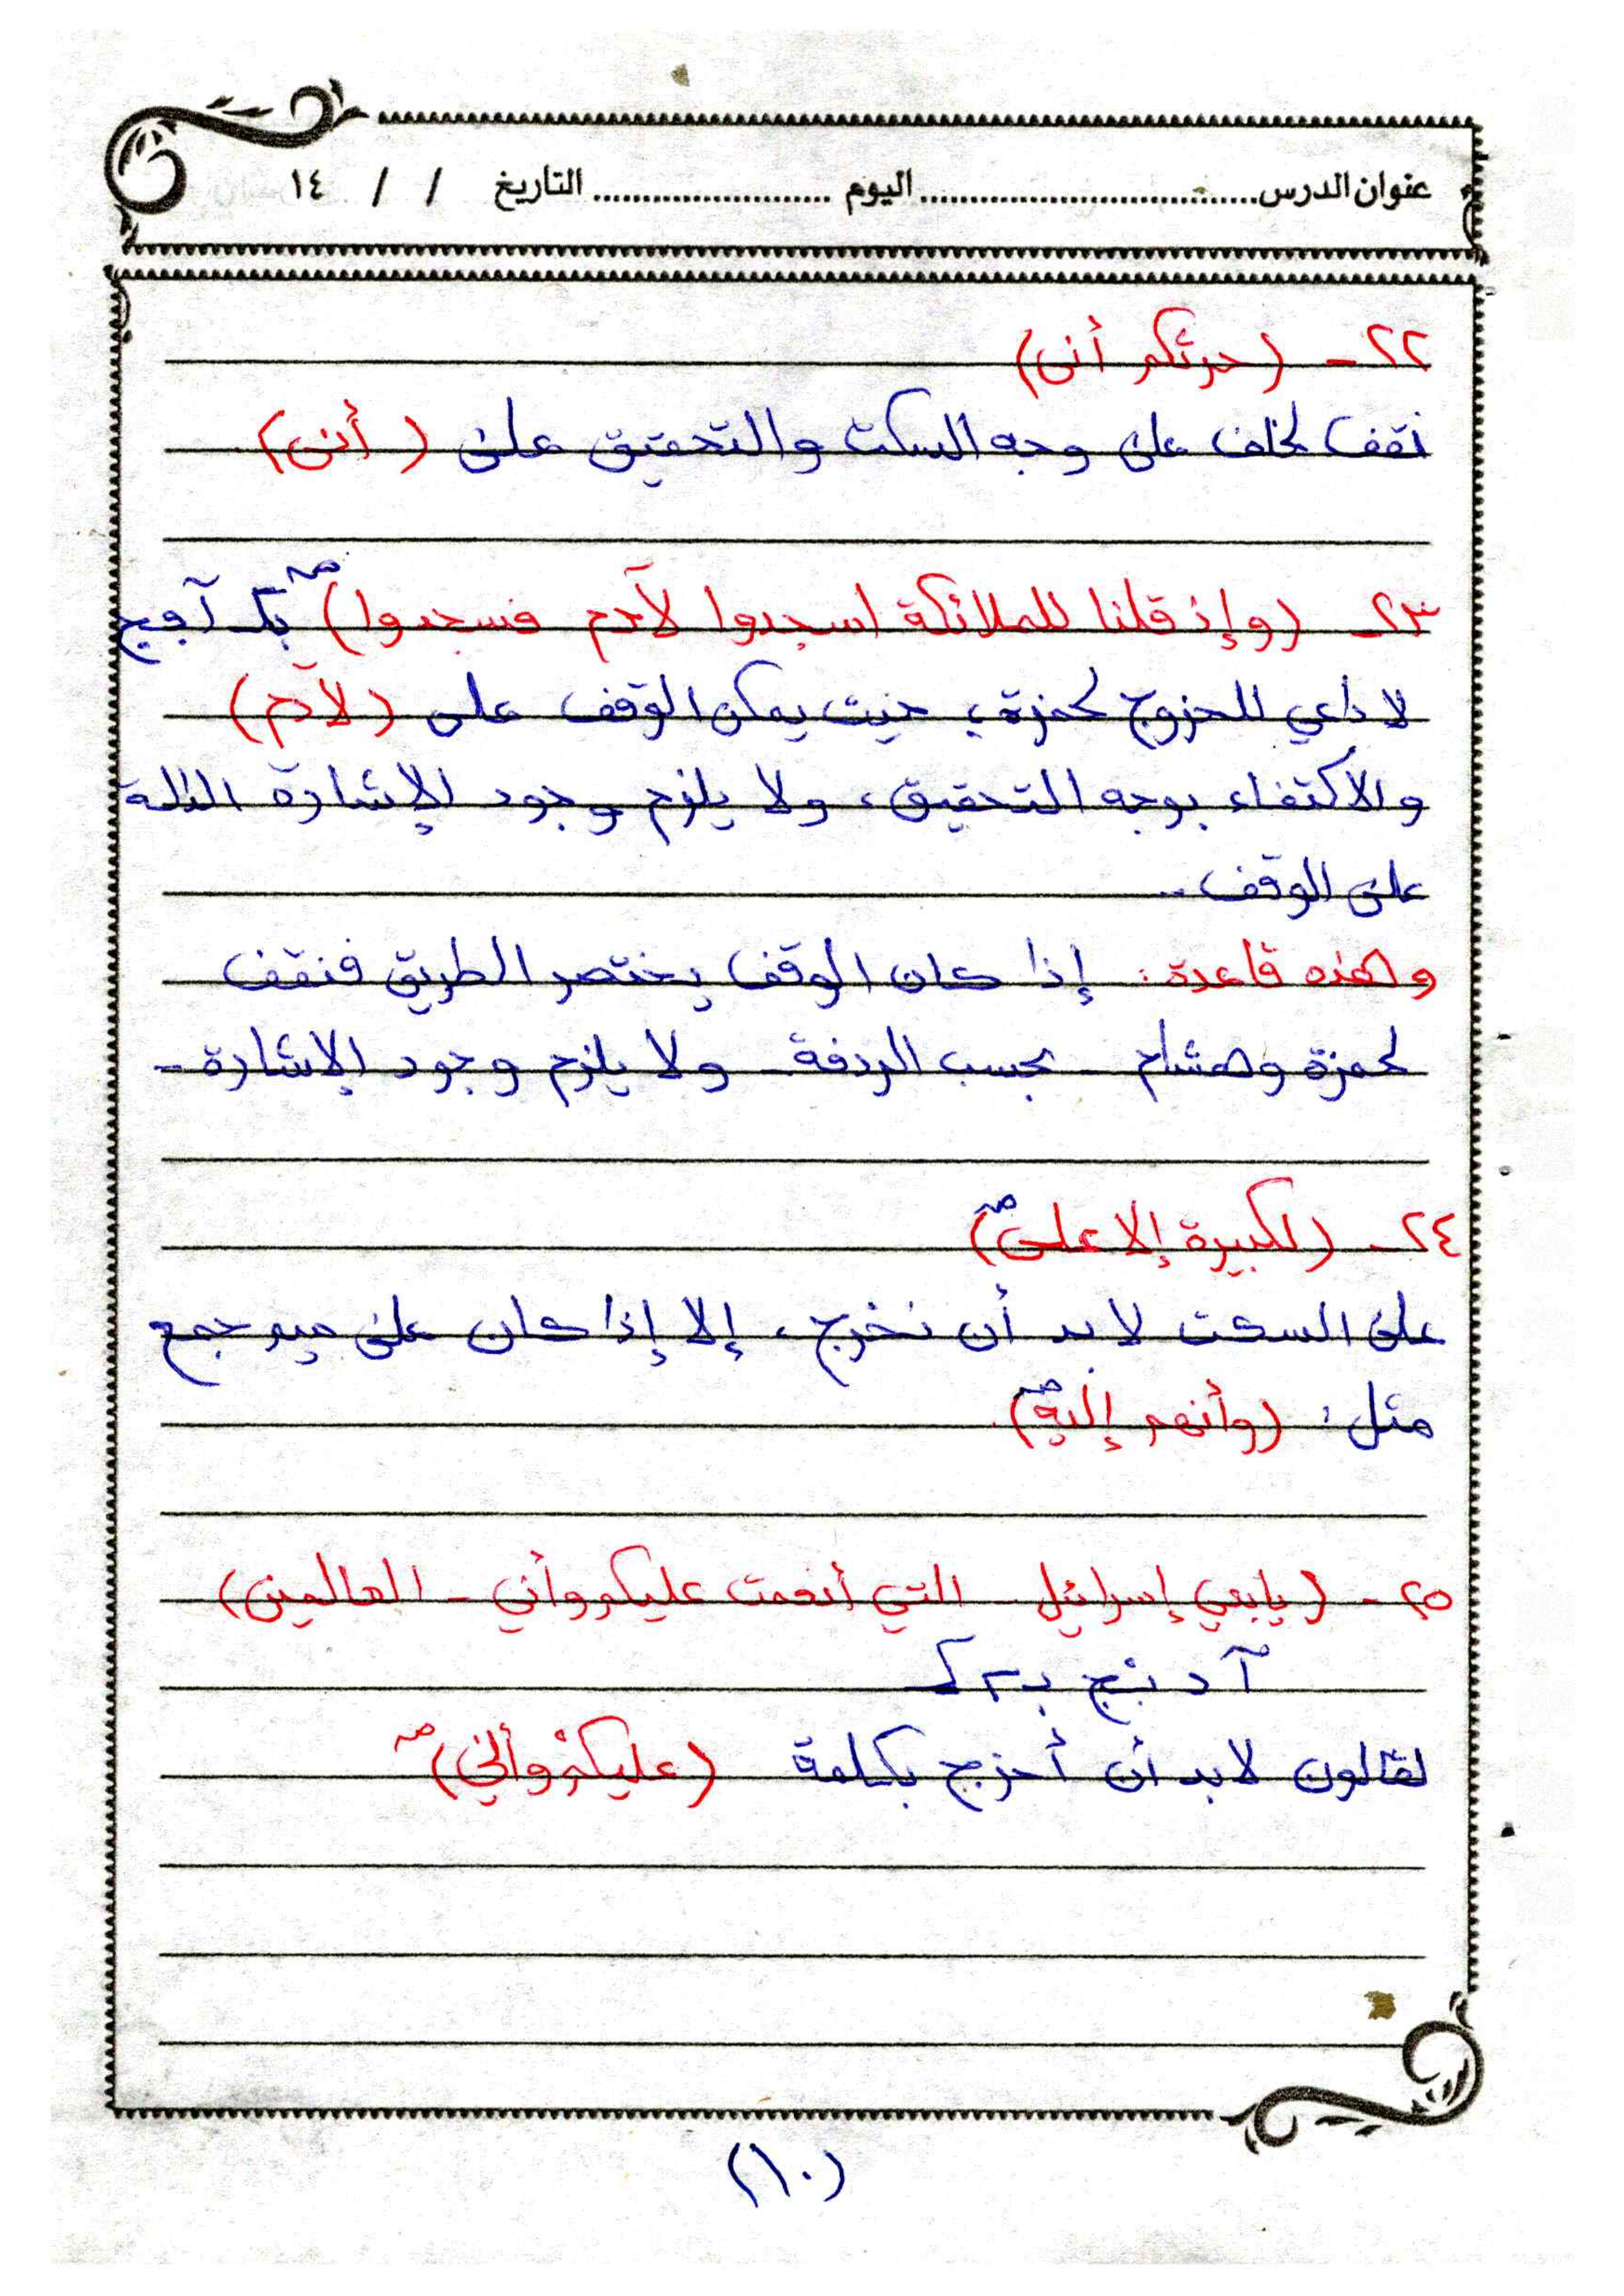 عنوان الدرس............................اليوم ....................... التاريخ / / ١٤
٢٢ - (حرثكم أنى)
نقف لخلف على وجه السكت والتحقيق على (أنى).
٢٣ - (وإذ قلنا للملائكة اسجدوا لآدم فسجدوا) صـ
لا داعي للخروج لحمزة، حيث يمكن الوقف على (لآدم)
والاكتفاء بوجه التحقيق، ولا يلزم وجود الإشارة الدالة
على الوقف -
وهذه قاعدة: إذا كان الوقف يختصر الطريق فنقف
لحمزة وهشام - بحسب الردفة - ولا يلزم وجود الإشارة -
٢٤ - (لكبيرة إلا على) صـ
على السكت لا بد أن نخرج، إلا إذا كان على ميم جمع
مثل: (وأنهم إليه) صـ
٢٥ - (يابني إسرائيل - التي أنعمت عليكم وأني - العالمين)
لقالون لابد أن أخرج بكلمة (عليكم وأني) صـ
(١٠)